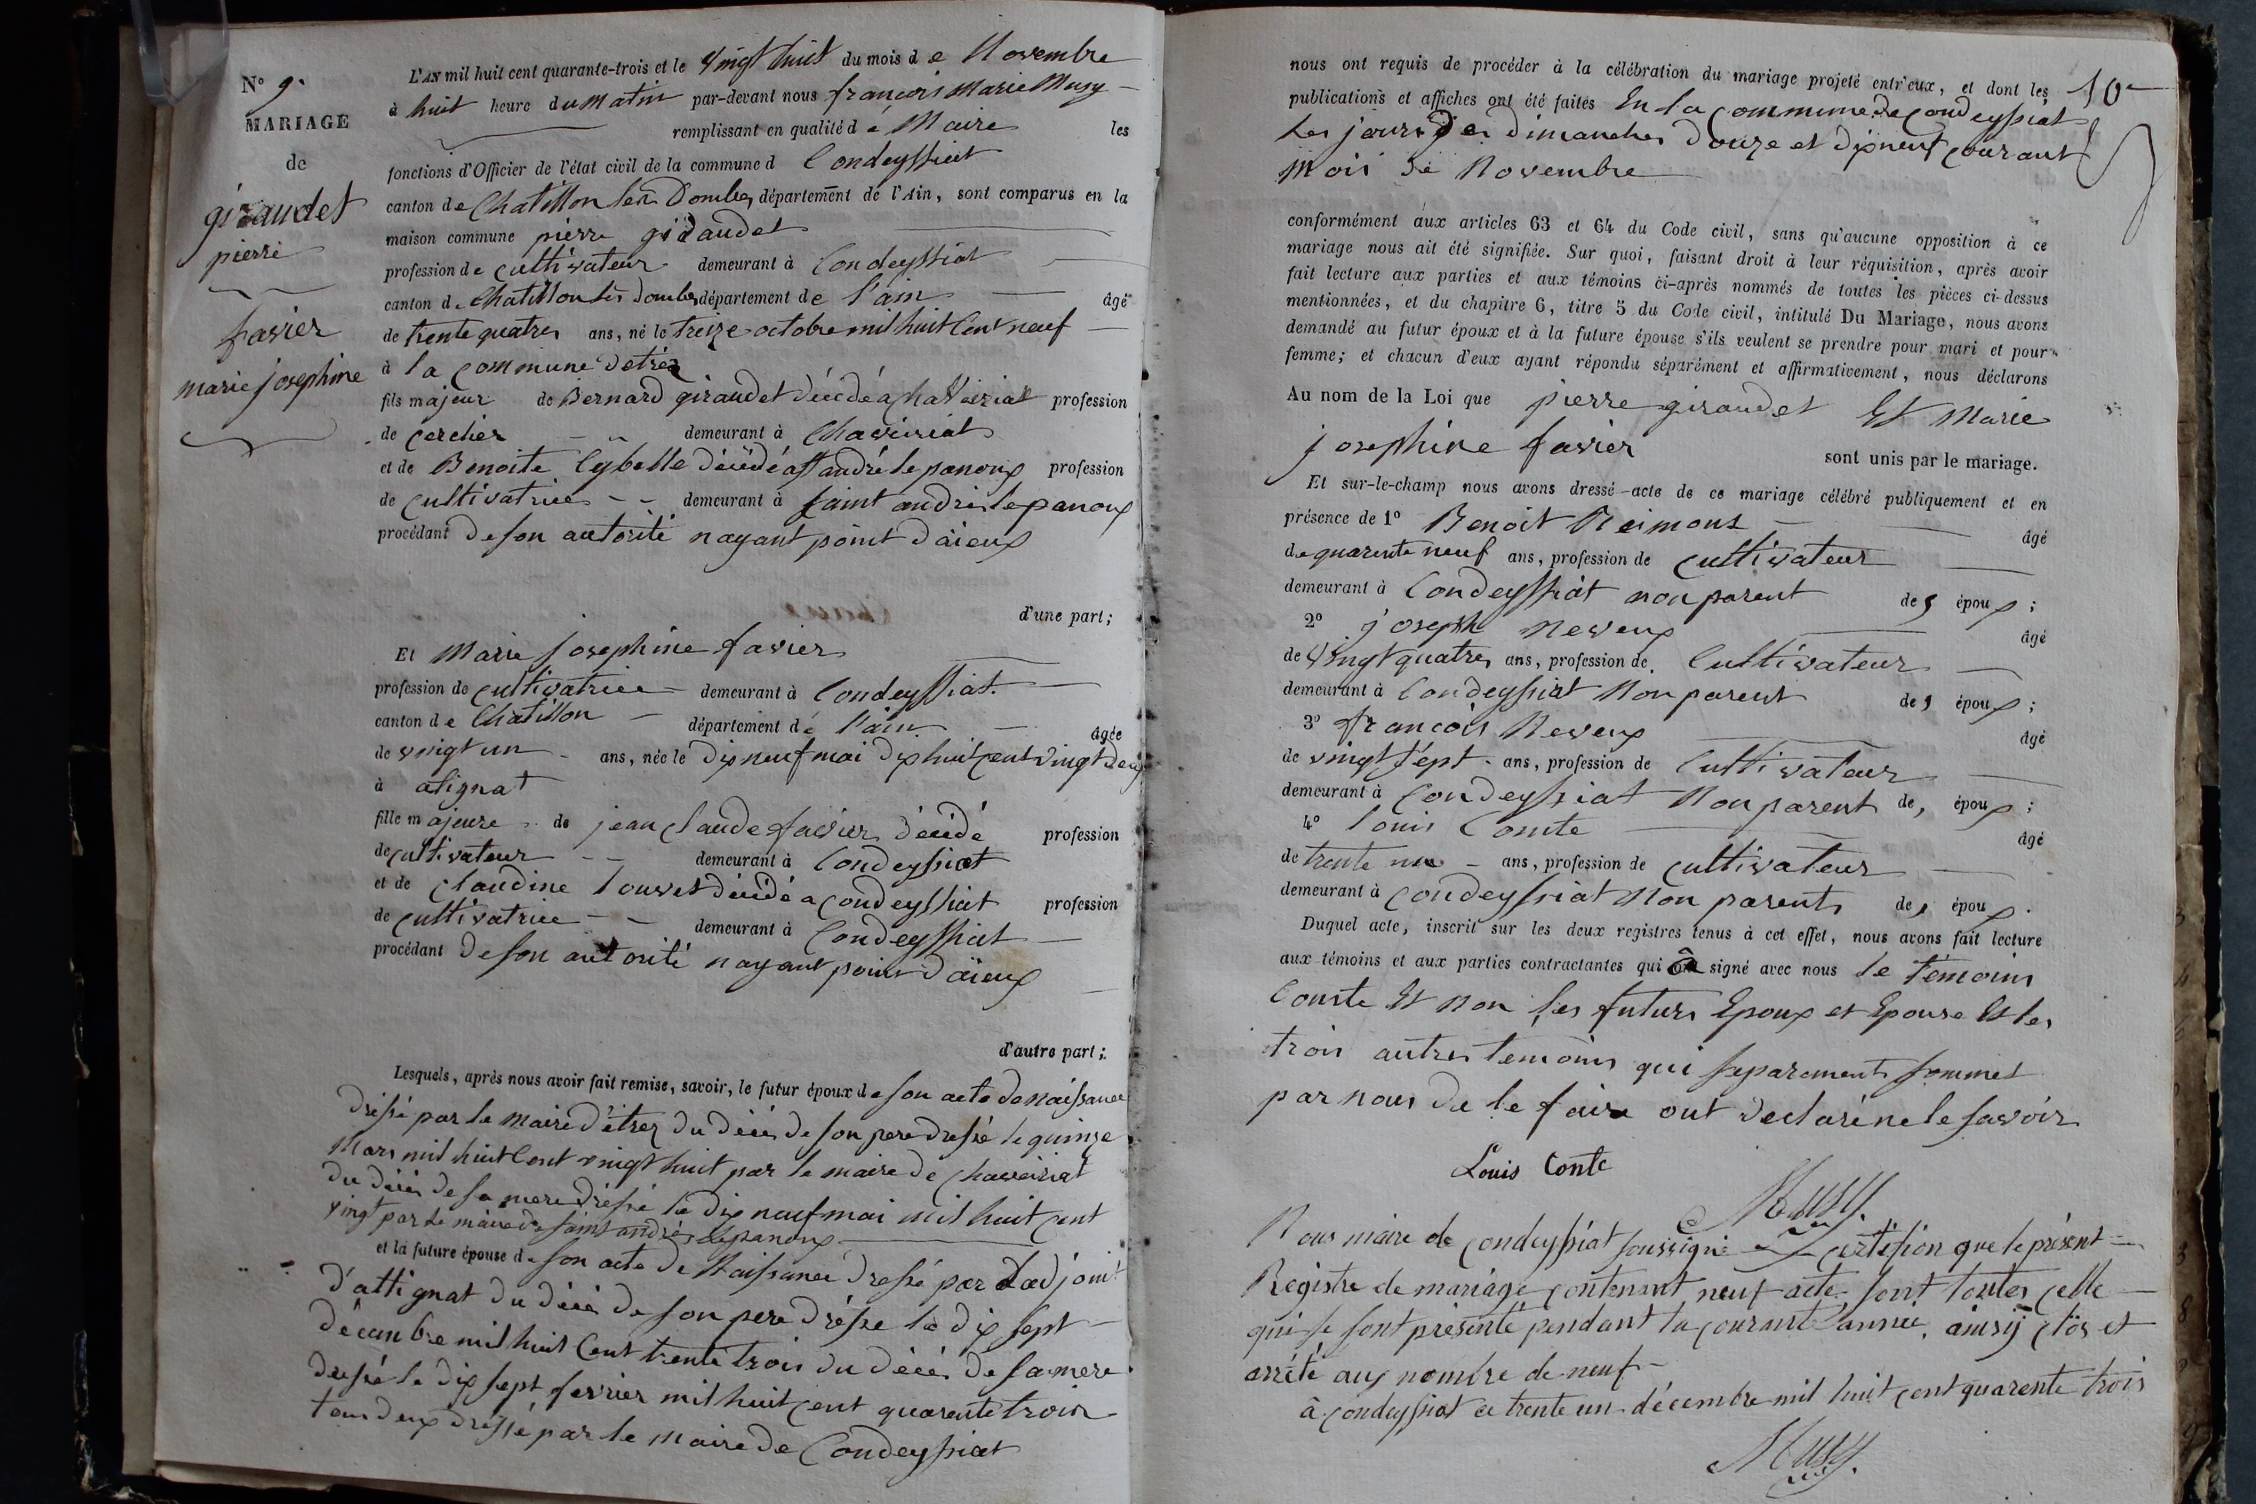 N° 9.
MARIAGE
de
giraudet
pierre
favier
marie josephine
L'AN mil huit cent quarante-trois et le Vingt huit du mois de Novembre
à huit heure du Matin par-devant nous francois Marie Musy
remplissant en qualité de Maire les
fonctions d'Officier de l'état civil de la commune d Condeyssiat
canton de Chatillon les Dombes, département de l'Ain, sont comparus en la
maison commune pierre giraudet
profession de cultivateur demeurant à Condeyssiat
canton de Chatillon les dombes département de l'ain âgé
de trente quatres ans, né le treize octobre mil huit Cent neuf
à la commune detréz
fils majeur de Bernard giraudet décédé a chaveiriat profession
de cercher demeurant à Chaveiriat
et de Benoite Cybelle décédé a st andré le panoux profession
de cultivatrice demeurant à saint andré le panoux
procédant de son autorité nayant point d'aieux
d'une part;
Et Marie josephine favier
profession de cultivatrice demeurant à Condeyssiat
canton de Chatillon département de l'ain âgée
de vingt un ans, née le dix neuf mai dix huit cent vingt deux
à atignat
fille majeure de jean claude favier décédé profession
de cultivateur demeurant à Condeyssiat
et de claudine Louvet décédé a condeyssiat profession
de cultivatrice demeurant à Condeyssiat
procédant de son autorité nayant point d'aïeux
d'autre part;
Lesquels, après nous avoir fait remise, savoir, le futur époux de son acte de naissance
dressé par le maire d'étrez du décé de son pere dressé le quinze
Mars mil huit Cent vingt huit par le maire de chaveiriat
du décé de sa mere dréssé le dix neuf mai mil huit cent
vingt par le maire de saint andré le panoux
et la future épouse de son acte de Naissance dressé par Ladjoint
d'attignat du décé de son pere dréssé le dix sept
décembre mil huit Cent trente trois du décé de sa mere
dressé le dix sept fevrier mil huit cent quarente trois
tous deux dressé par le Maire de Condeyssiat
10
nous ont requis de procéder à la célébration du mariage projeté entr'eux, et dont les
publications et affiches ont été faites En la commune de condeyssiat
Les jours des dimanches douze et dixneuf courant
Mois de Novembre
conformément aux articles 63 et 64 du Code civil, sans qu'aucune opposition à ce
mariage nous ait été signifiée. Sur quoi, faisant droit à leur réquisition, après avoir
fait lecture aux parties et aux témoins ci-après nommés de toutes les pièces ci-dessus
mentionnées, et du chapitre 6, titre 5 du Code civil, intitulé Du Mariage, nous avons
demandé au futur époux et à la future épouse s'ils veulent se prendre pour mari et pour
femme; et chacun d'eux ayant répondu séparément et affirmativement, nous déclarons
Au nom de la Loi que pierre giraudet Et Marie
josephine favier sont unis par le mariage.
Et sur-le-champ nous avons dressé acte de ce mariage célébré publiquement et en
présence de 1° Benoit Reimons âgé
de quarente neuf ans, profession de cultivateur
demeurant à Condeyssiat non parent des époux;
2° joseph Neveux âgé
de Vingt quatres ans, profession de Cultivateur
demeurant à Condeyssiat Non parent des époux;
3° francois Neveux âgé
de vingt sépt ans, profession de Cultivateur
demeurant à Condeyssiat Non parent des époux;
4° Louis Comte âgé
de trente un ans, profession de cultivateur
demeurant à Condeyssiat Non parent des époux.
Duquel acte, inscrit sur les deux registres tenus à cet effet, nous avons fait lecture
aux témoins et aux parties contractantes qui ôn signé avec nous le témoins
Comte Et Non les futurs Epoux et Epouse Et les
trois autres temoins qui separement sommes
par nous de le faire ont declaré ne le savoir
Louis Conte
Musy
Nous maire de condeyssiat soussigné certifion que le présent
Registre de mariage contenant neuf acte sont toutes celle
qui se sont présenté pendant la courant année, ainsy clos et
arrété aux nombre de neuf
à condeyssiat ce trente un décembre mil huit cent quarente trois
Musy